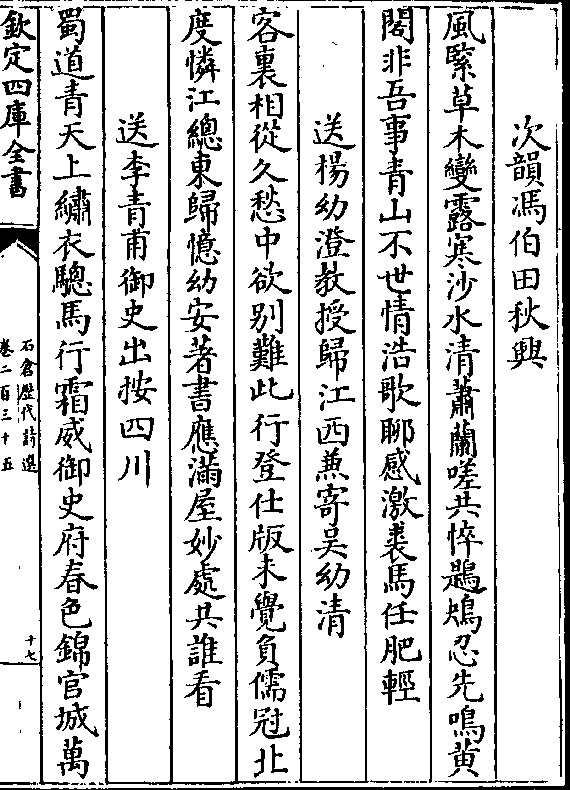 次韻馮伯田秋興
風緊草木變露寒沙水清蕭蘭嗟共悴鶗鴂忍先鳴黄
閣非吾事青山不世情浩歌聊感激裘馬任肥輕
送楊幼澄教授歸江西兼寄吴幼清
客裏相從久愁中欲别難此行登仕版未覺負儒冠北
度憐江總東歸憶幼安著書應滿屋妙處共誰看
送李青甫御史出按四川
蜀道青天上繡衣驄馬行霜威御史府春色錦官城萬
欽定四庫全書
石倉歴代詩選
卷二百三十五
十七